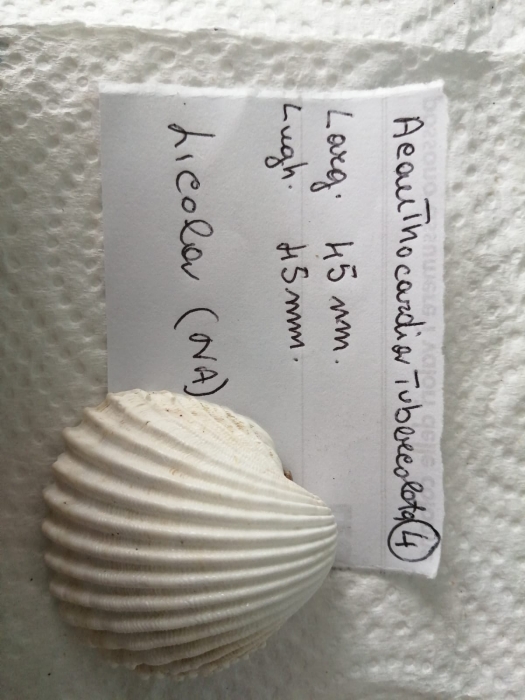 Acanthocardia Tubercolata 4
Larg. 45 mm.
Lugh. 45 mm.
Licola (NA)